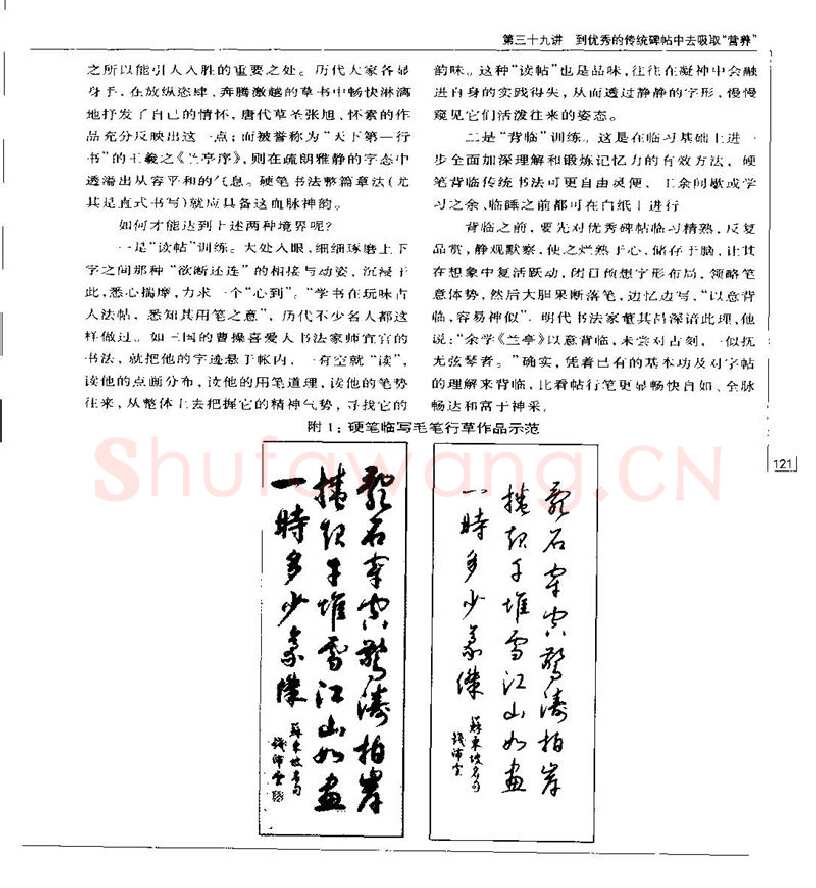 第三十九讲 到优秀的传统碑帖中去吸取“营养”
之所以能引人入胜的重要之处。历代大家各显
身手，在放纵恣肆、奔腾激越的草书中畅快淋漓
地抒发了自己的情怀，唐代草圣张旭、怀素的作
品充分反映出这一点；而被誉称为“天下第一行
书”的王羲之《兰亭序》，则在疏朗雅静的字态中
透溢出从容平和的气息。硬笔书法整篇章法（尤
其是直式书写）就应具备这血脉神韵。
如何才能达到上述两种境界呢？
一是“读帖”训练。大处入眼，细细琢磨上下
字之间那种“欲断还连”的相接与动姿，沉浸于
此，悉心揣摩，力求一个“心到”。“学书在玩味古
人法帖，悉知其用笔之意”，历代不少名人都这
样做过。如三国的曹操喜爱人书法家师宜官的
书法，就把他的字迹悬于帐内，一有空就“读”，
读他的点画分布，读他的用笔道理，读他的笔势
往来，从整体上去把握它的精神气势，寻找它的
韵味。这种“读帖”也是品味，往往在凝神中会融
进自身的实践得失，从而透过静静的字形，慢慢
窥见它们活泼往来的姿态。
二是“背临”训练。这是在临习基础上进一
步全面加深理解和锻炼记忆力的有效方法，硬
笔背临传统书法可更自由灵便，工余间歇或学
习之余，临睡之前都可在白纸上进行
背临之前，要先对优秀碑帖临习精熟，反复
品赏，静观默察，使之烂熟于心，储存于脑，让其
在想象中复活跃动，闭目预想字形布局，领略笔
意体势，然后大胆果断落笔，边忆边写，“以意背
临，容易神似”。明代书法家董其昌深谙此理，他
说：“余学《兰亭》以意背临，未尝对古刻，一似抚
无弦琴者。”确实，凭着已有的基本功及对字帖
的理解来背临，比看帖行笔更显畅快自如、全脉
畅达和富于神采。
附1：硬笔临写毛笔行草作品示范
亂石穿空驚濤拍岸
捲起千堆雪江山如畫
一時多少豪傑
蘇東坡名句
錢沛雲
亂石穿空驚濤拍岸
捲起千堆雪江山如畫
一時多少豪傑
蘇東坡名句
錢沛雲
121
Shufawang.CN